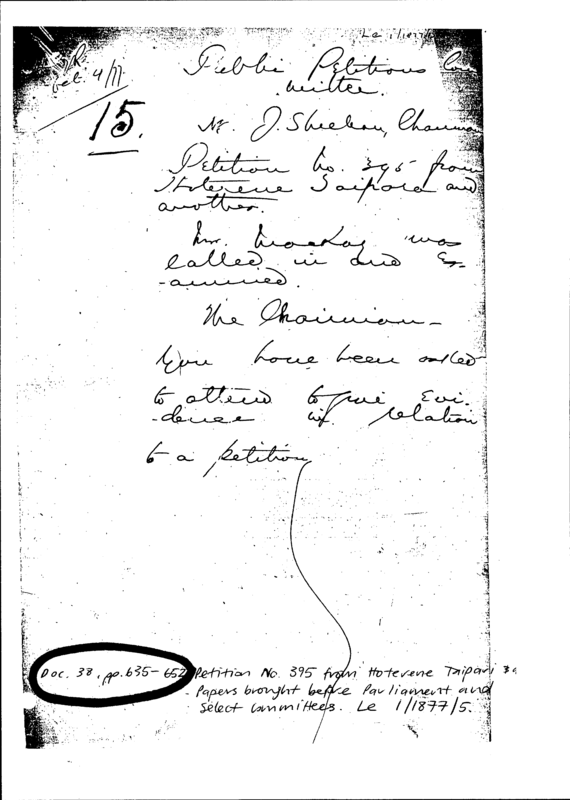 Le 1/1877/5
Oct. 4/77
15.
Public Petitions Com
mittee.
Mr. J. Sheehan, Chairman
Petition No. 395 from
Hoterene Taipara and
another.
Mr. Mackay was
called in and Ex-
-amined.
The Chairman –
You have been asked
to attend to give Evi-
-dence in relation
to a petition
Doc. 38, pp. 635-652
Petition No. 395 from Hoterene Taipari
- Papers brought before Parliament and
Select Committees. Le 1/1877/5.